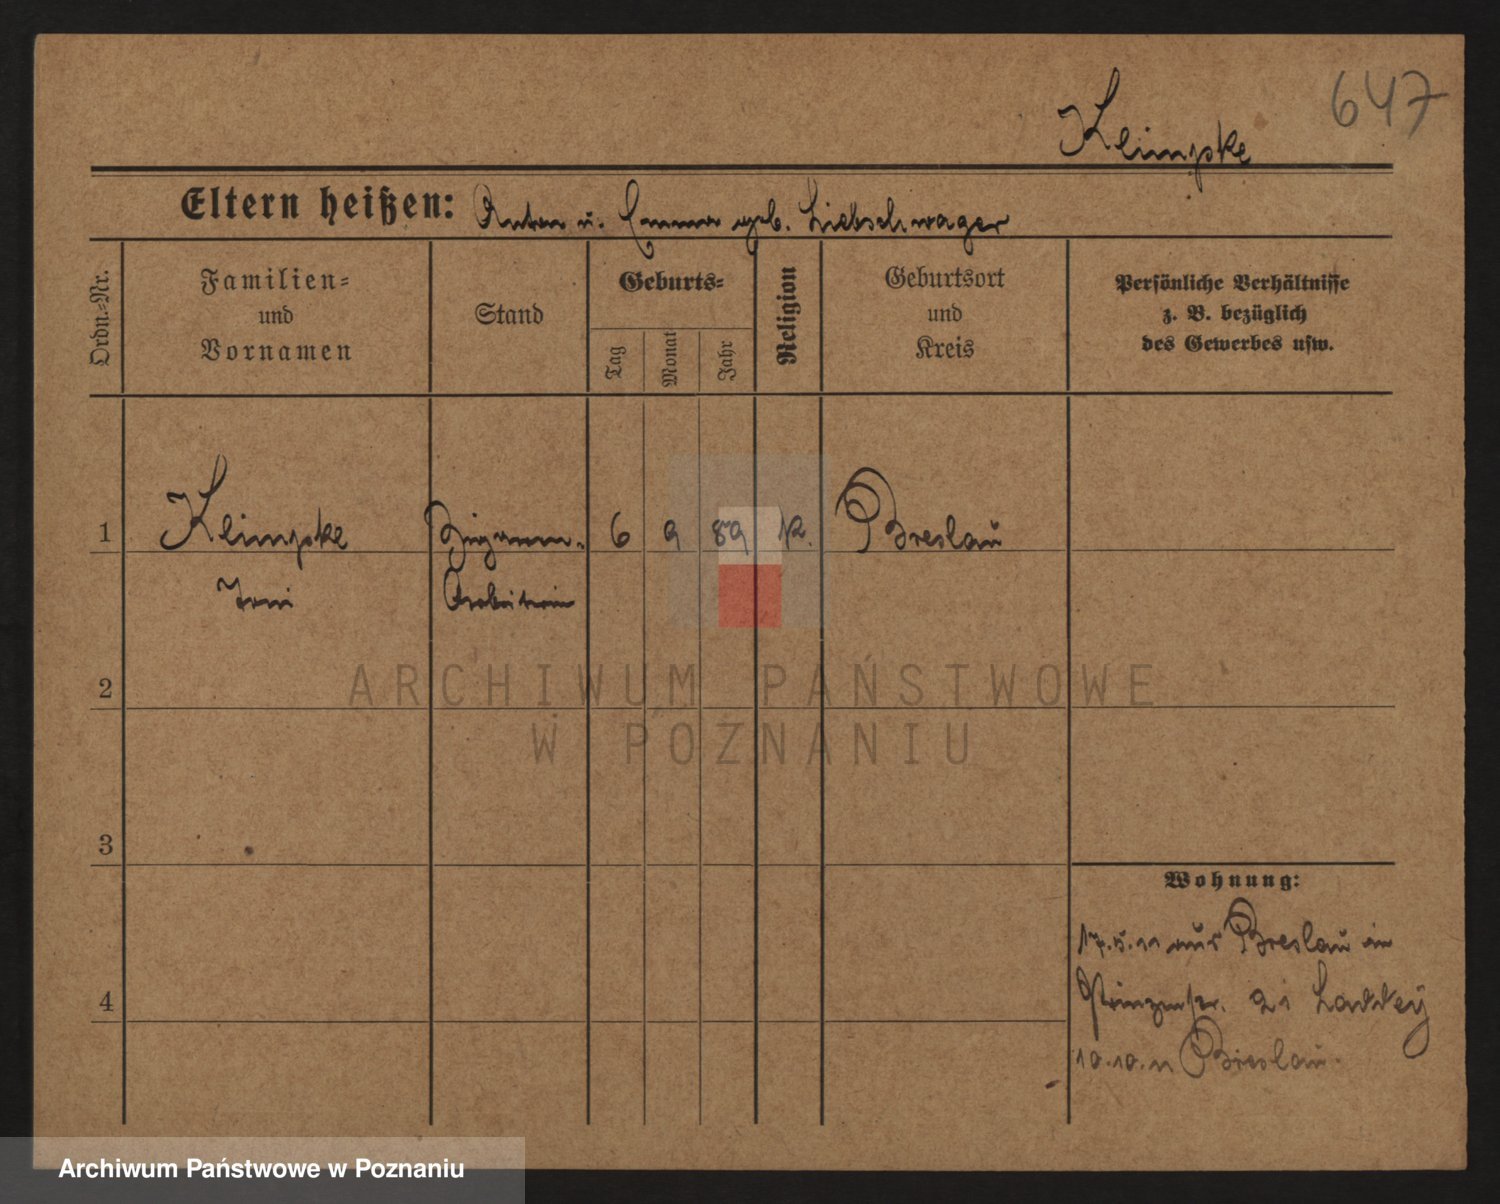 647
Kleimpke
Eltern heißen: Anton u. Emma geb. Liebschwager
Ordn.=Nr.
Familien=
und
Vornamen
Stand
Geburts=
Tag
Monat
Jahr
Religion
Geburtsort
und
Kreis
Persönliche Verhältnisse
z. B. bezüglich
des Gewerbes usw.
1 Kleimpke Zigarren- 6 9 89 k. Breslau
Arbeiterin
2
3
4
Wohnung:
17.5.11 aus Breslau in
Prinzenstr. 21
10.10.11 Breslau.
ARCHIWUM PAŃSTWOWE
W POZNANIU
Archiwum Państwowe w Poznaniu